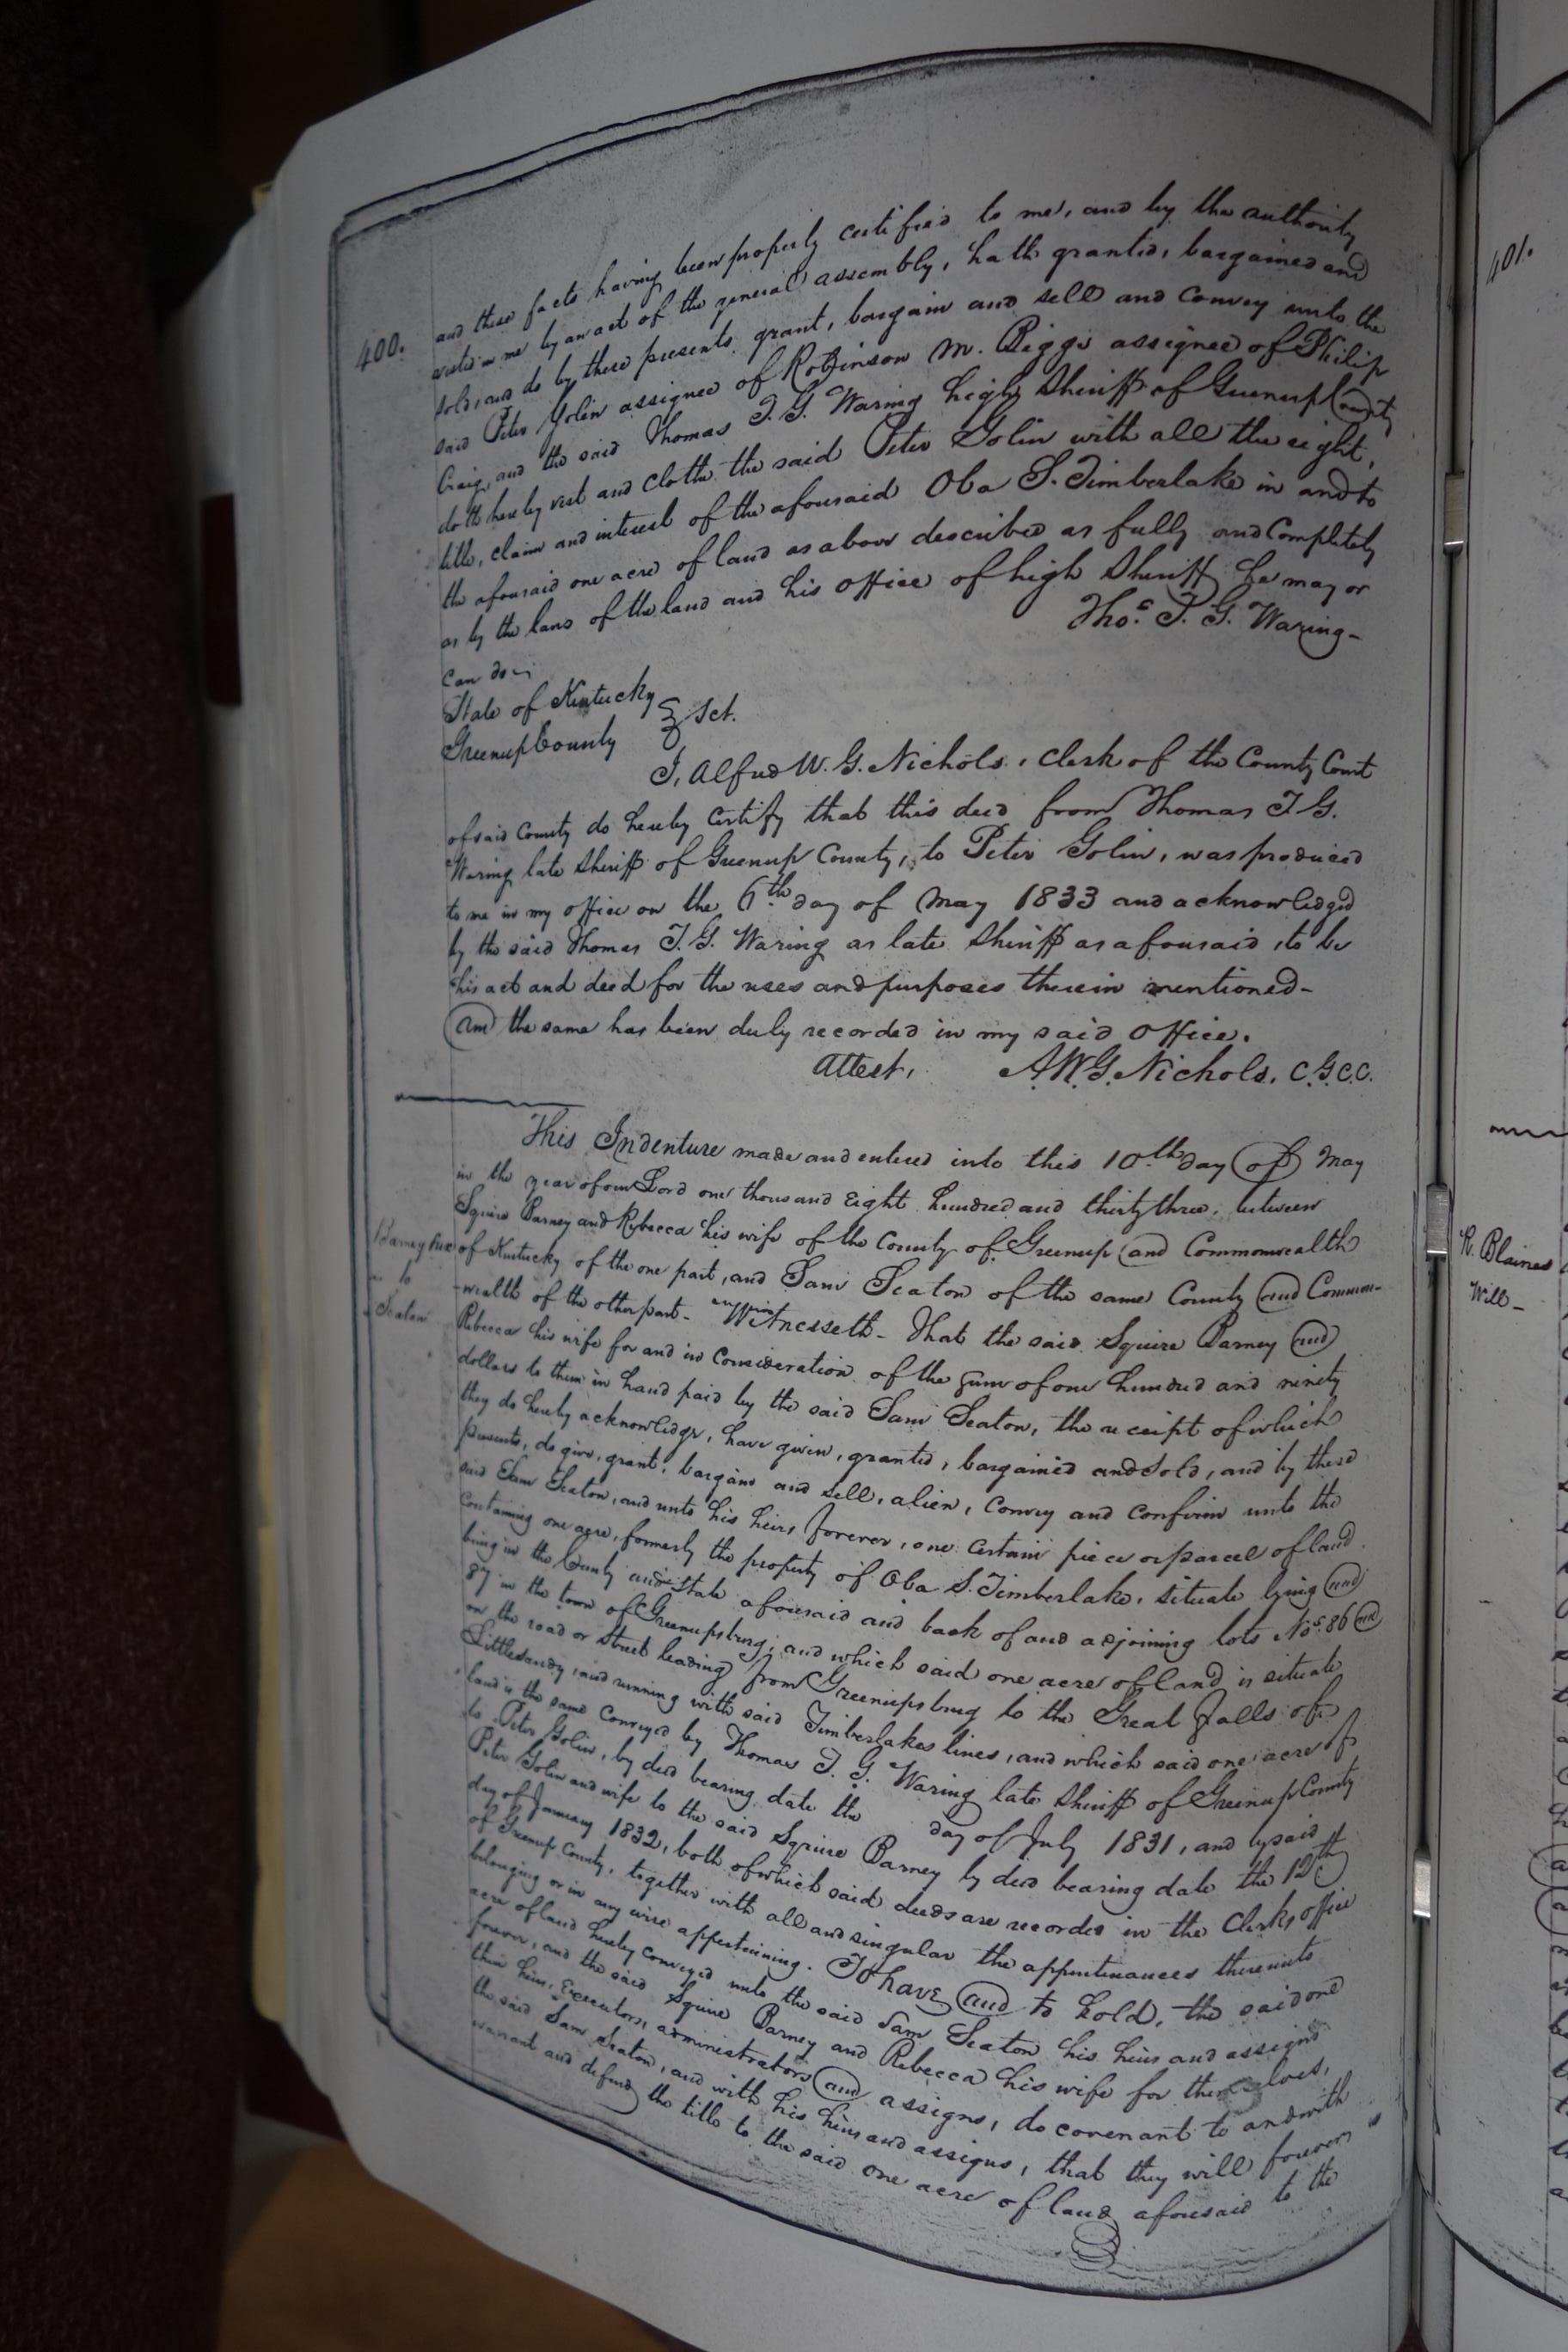 400.
and these facts having been properly certified to me, and by the authority
vested in me by an act of the general assembly, hath granted, bargained and
sold, and do by these presents, grant, bargain and sell and convey unto the
said Peter Golin assignee of Robinson M. Biggs assignee of Philip
Craig, and the said Thomas T. G. Waring high Sheriff of Greenup County
doth hereby vest and clothe the said Peter Golin with all the right,
title, claim and interest of the aforesaid Oba S. Timberlake in and to
the aforesaid one acre of land as above described as fully and completely
as by the laws of the land and his office of high Sheriff he may or
can do.
Tho.s T. G. Waring-
State of Kentucky
Greenup County } Sct.
I, Alfred W. G. Nichols, Clerk of the County Court
of said County do hereby certify that this deed from Thomas T G.
Waring late Sheriff of Greenup County, to Peter Golin, was produced
to me in my office on the 6th day of May 1833 and acknowledged
by the said Thomas T. G. Waring as late Sheriff as aforesaid, to be
his act and deed for the uses and purposes therein mentioned-
and the same has been duly recorded in my said office.
Attest, A.W.G. Nichols. C.G.C.C.
This Indenture made and entered into this 10th day of May
in the year of our Lord one thousand Eight hundred and thirty three, between
Squire Barney and Rebecca his wife of the County of Greenup and Commonwealth
Barney &ux
to
Seaton
of Kentucky of the one part, and Sam Seaton of the same County and Common-
-wealth of the other part- Witnesseth- That the said Squire Barney and
Rebecca his wife for and in Consideration of the sum of one hundred and ninety
dollars to them in hand paid by the said Sam Seaton, the receipt of which
they do hereby acknowledge, have given, granted, bargained and sold, and by these
presents, do give, grant, bargain and sell, alien, convey and confirm unto the
said Sam Seaton, and unto his heirs forever, one certain piece or parcel of land
containing one acre, formerly the property of Oba S. Timberlake, situate lying and
being in the County and State aforesaid and back of and adjoining lots Nos. 86 and
87 in the town of Greenupsburg, and which said one acre of land is situate
on the road or street leading from Greenupsburg to the Great Falls of
Littlesandy, and running with said Timberlakes lines, and which said one acre of
land is the same conveyed by Thomas T. G. Waring late Sheriff of Greenup County
to Peter Golin, by deed bearing date the day of July 1831, and by said
Peter Golin and wife to the said Squire Barney by deed bearing date the 12th
day of January 1832, both of which said deeds are recorded in the Clerks office
of Greenup County, together with all and singular the appurtenances thereunto
belonging or in any wise appertaining. To have and to hold, the said one
acre of land hereby conveyed unto the said Sam Seaton his heirs and assigns
forever, and the said Squire Barney and Rebecca his wife for themselves,
their heirs, Executors, administrators and assigns, do covenant to and with
the said Sam Seaton, and with his heirs and assigns, that they will forever
warrant and defend the title to the said one acre of land aforesaid to the
401.
R. Blaines
Will-